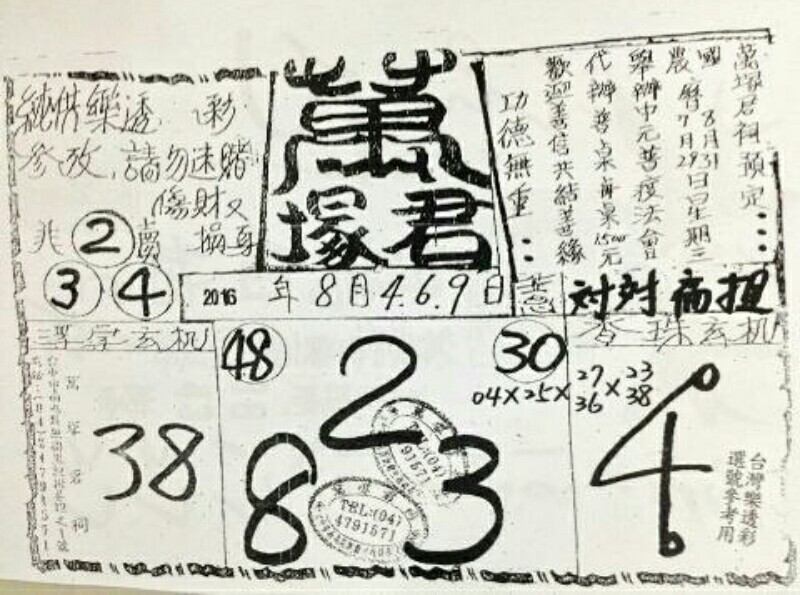 萬塚君祠預定
國曆8月31日星期三
農曆7月29日
舉辦中元普渡法會
代辦普桌每桌1500元
歡迎善信共結善緣
功德無重
萬
塚君
純供樂透彩
參攷,請勿迷賭
傷財又
損身
非賣
2
3 4
2016年8月4.6.9日
浮字玄机
香珠玄机
萬塚君祠
38
48
30
2
8
3
04×25×27 36×23 38
4
TEL:(04)
4791571
TEL:(04)
台灣樂透彩
選號參考用